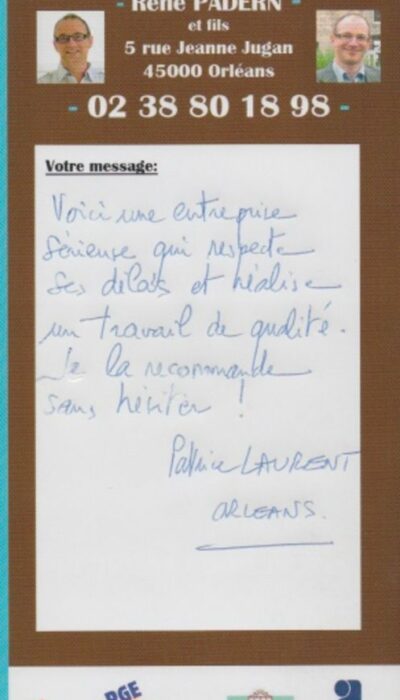 - René PADERN -
et fils
5 rue Jeanne Jugan
45000 Orléans
- 02 38 80 18 98 -
Votre message:
Voici une entreprise
sérieuse qui respecte
ses délais et réalise
un travail de qualité.
Je la recommande
sans hésiter !
Patrice LAURENT
ORLEANS.
RGE